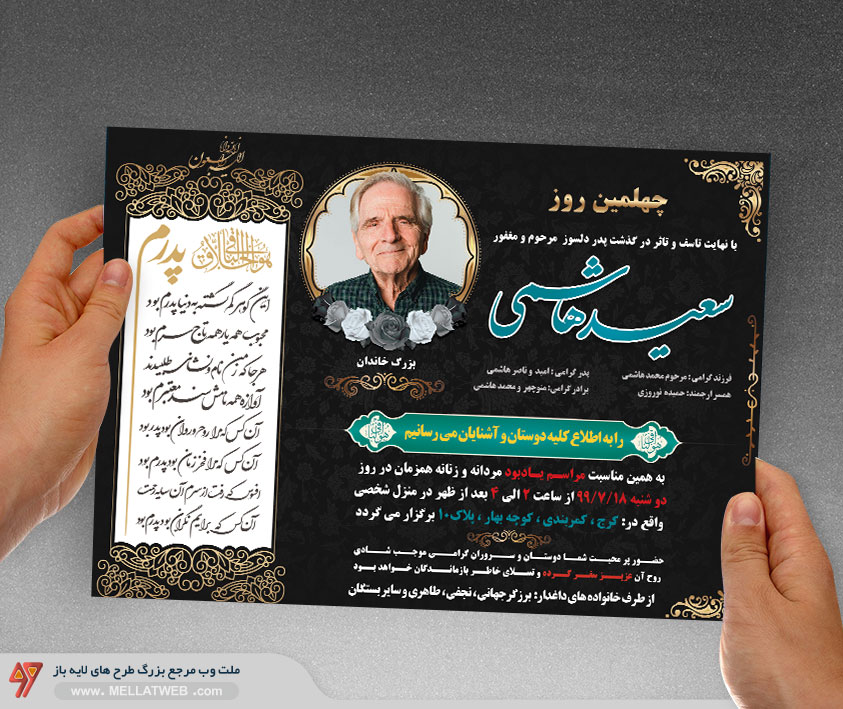 چهلمین روز
با نهایت تاسف و تاثر در گذشت پدر دلسوز مرحوم و مغفور
سعید هاشمی
فرزند گرامی: مرحوم محمد هاشمی
پدر گرامی: امید و ناصر هاشمی
همسر ارجمند: حمیده نوروزی
برادر گرامی: منوچهر و محمد هاشمی
را به اطلاع کلیه دوستان و آشنایان می رسانیم
به همین مناسبت مراسم یادبود مردانه و زنانه همزمان در روز
دو شنبه ۹۹/۷/۱۸ از ساعت ۲ الی ۴ بعد از ظهر در منزل شخصی
واقع در: کرج ، کمربندی ، کوچه بهار ، پلاک۱۰ برگزار می گردد
حضور پر محبت شما دوستان و سروران گرامی موجب شادی
روح آن عزیز سفر کرده و تسلای خاطر بازماندگان خواهد بود
از طرف خانواده های داغدار: برزگر جهانی، نجفی، طاهری و سایر بستگان
بزرگ خاندان
انا لله و انا الیه راجعون
هو الخلاق الباقی
پدرم
این گوهر گم گشته به دنیا پدرم بود
محبوب همه یار همه تاج سرم بود
هر جا که زمین نام و نشانی طلبیدند
آوازه همه نامش سند معتبرم بود
آن کس که مرا روح و روان بود پدر بود
آن کس که مرا فخر زمان بود پدرم بود
افسوس که رفت از سرم آن سایه رحمت
آن کس که برایم نگران بود پدرم بود
ملت وب مرجع بزرگ طرح های لایه باز
www. MELLATWEB .com